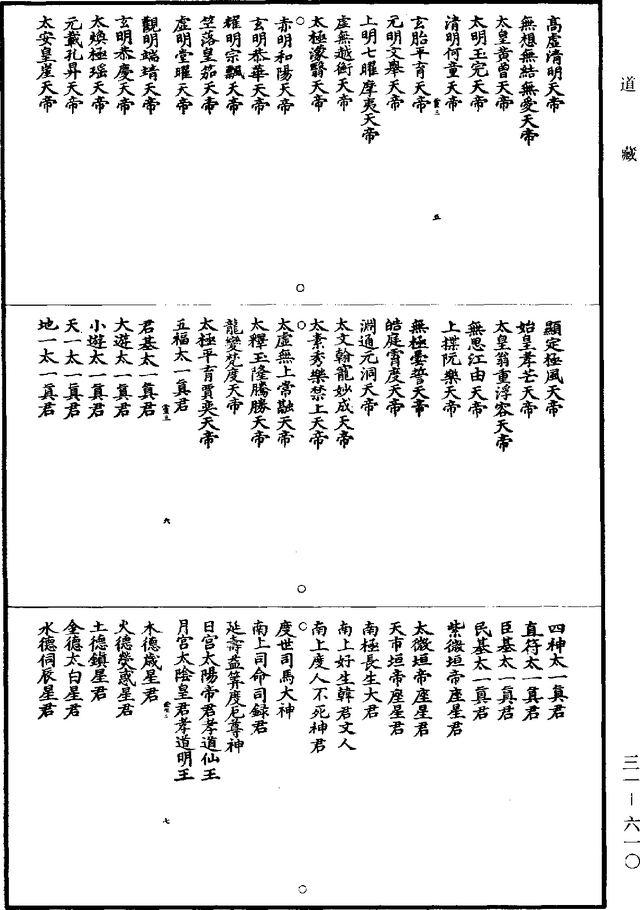 道藏
高虛清明天帝
無想無結無愛天帝
太皇黃曾天帝
太明玉完天帝
清明何童天帝
玄胎平育天帝
元明文舉天帝
上明七曜摩夷天帝
虛無越衡天帝
太極濛翳天帝
○
赤明和陽天帝
玄明恭華天帝
耀明宗飄天帝
竺落皇笳天帝
虛明堂曜天帝
觀明端靖天帝
玄明恭慶天帝
太煥極瑶天帝
元載孔昇天帝
太安皇崖天帝
五
○
顯定極風天帝
始皇孝芒天帝
太皇翁重浮容天帝
無思江由天帝
上揲阮樂天帝
無極曇誓天帝
皓庭霄度天帝
淵通元洞天帝
太文翰寵妙成天帝
太素秀樂禁上天帝
○
太虛無上常融天帝
太釋玉隆騰勝天帝
龍變梵度天帝
太極平育賈奕天帝
五福太一真君
君基太一真君
大遊太一真君
小遊太一真君
天一太一真君
地一太一真君
六
○
四神太一真君
直符太一真君
臣基太一真君
民基太一真君
紫微垣帝座星君
太微垣帝座星君
天市垣帝座星君
南極長生大君
南上好生韓君丈人
南上度人不死神君
○
度世司馬大神
南上司命司録君
延壽益筭度厄尊神
日宮太陽帝君孝道仙王
月宮太陰皇君孝道明王
木德歲星君
火德熒惑星君
土德鎮星君
金德太白星君
水德伺辰星君
七
○
三一－六一〇